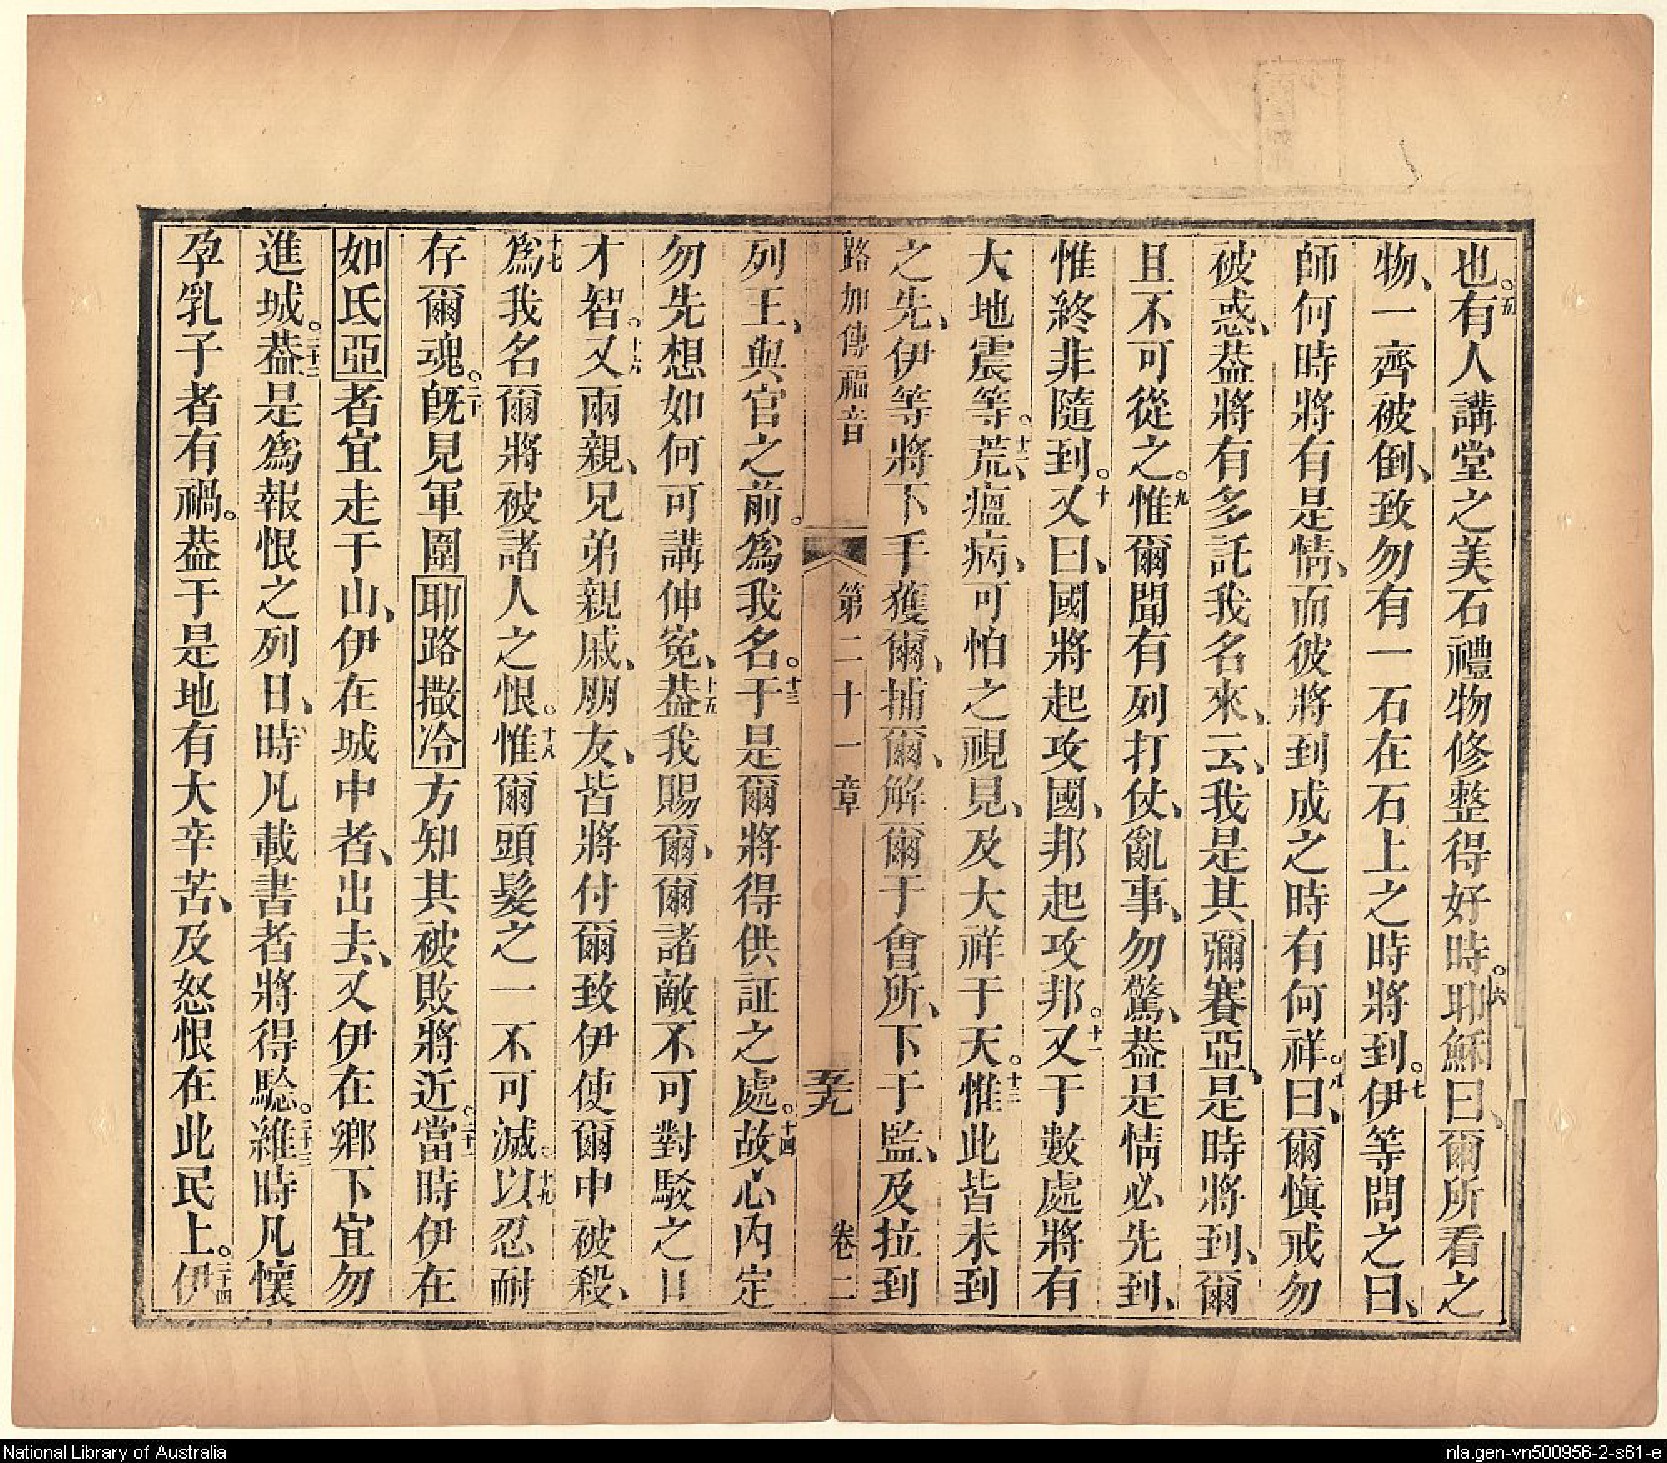 也。五有人講堂之美石禮物修整得好時。六耶穌曰、爾所看之
物、一齊被倒、致勿有一石在石上之時將到。七伊等問之曰、
師何時將有是情、而彼將到成之時有何祥。八曰、爾慎戒勿
被惑、葢將有多託我名來、云、我是其彌賽亞、是時將到、爾
且不可從之。九惟爾聞有列打仗、亂事、勿驚、葢是情必先到、
惟終非隨到。十又曰、國將起攻國、邦起攻邦。十一又于數處將有
大地震等。十二荒、瘟病、可怕之視見、及大祥于天。十二惟此皆未到
之先、伊等將下手獲爾、捕爾、解爾于會所、下于監、及拉到
路加傳福音 第二十一章 五十九 卷二
列王、與官之前。為我名。十三于是爾將得供証之處。十四故心內定
勿先想如何可講伸冤、十五葢我賜爾、爾諸敵不可對駁之口
才智。十六又兩親、兄弟親戚、朋友、皆將付爾致伊使爾中被殺、
十七為我名爾將被諸人之恨。十八惟爾頭髮之一不可滅。十九以忍耐
存爾魂。二十旣見軍圍耶路撒冷方知其被敗將近。二十一當時伊在
如氐亞者宜走于山、伊在城中者、出去、又伊在鄉下宜勿
進城。二十二葢是為報恨之列日、時凡載書者將得騐。二十三維時凡懷
孕乳子者有禍。葢于是地有大辛苦、及怒恨在此民上。二十四伊
National Library of Australia
nla.gen-vn500956-2-s61-e